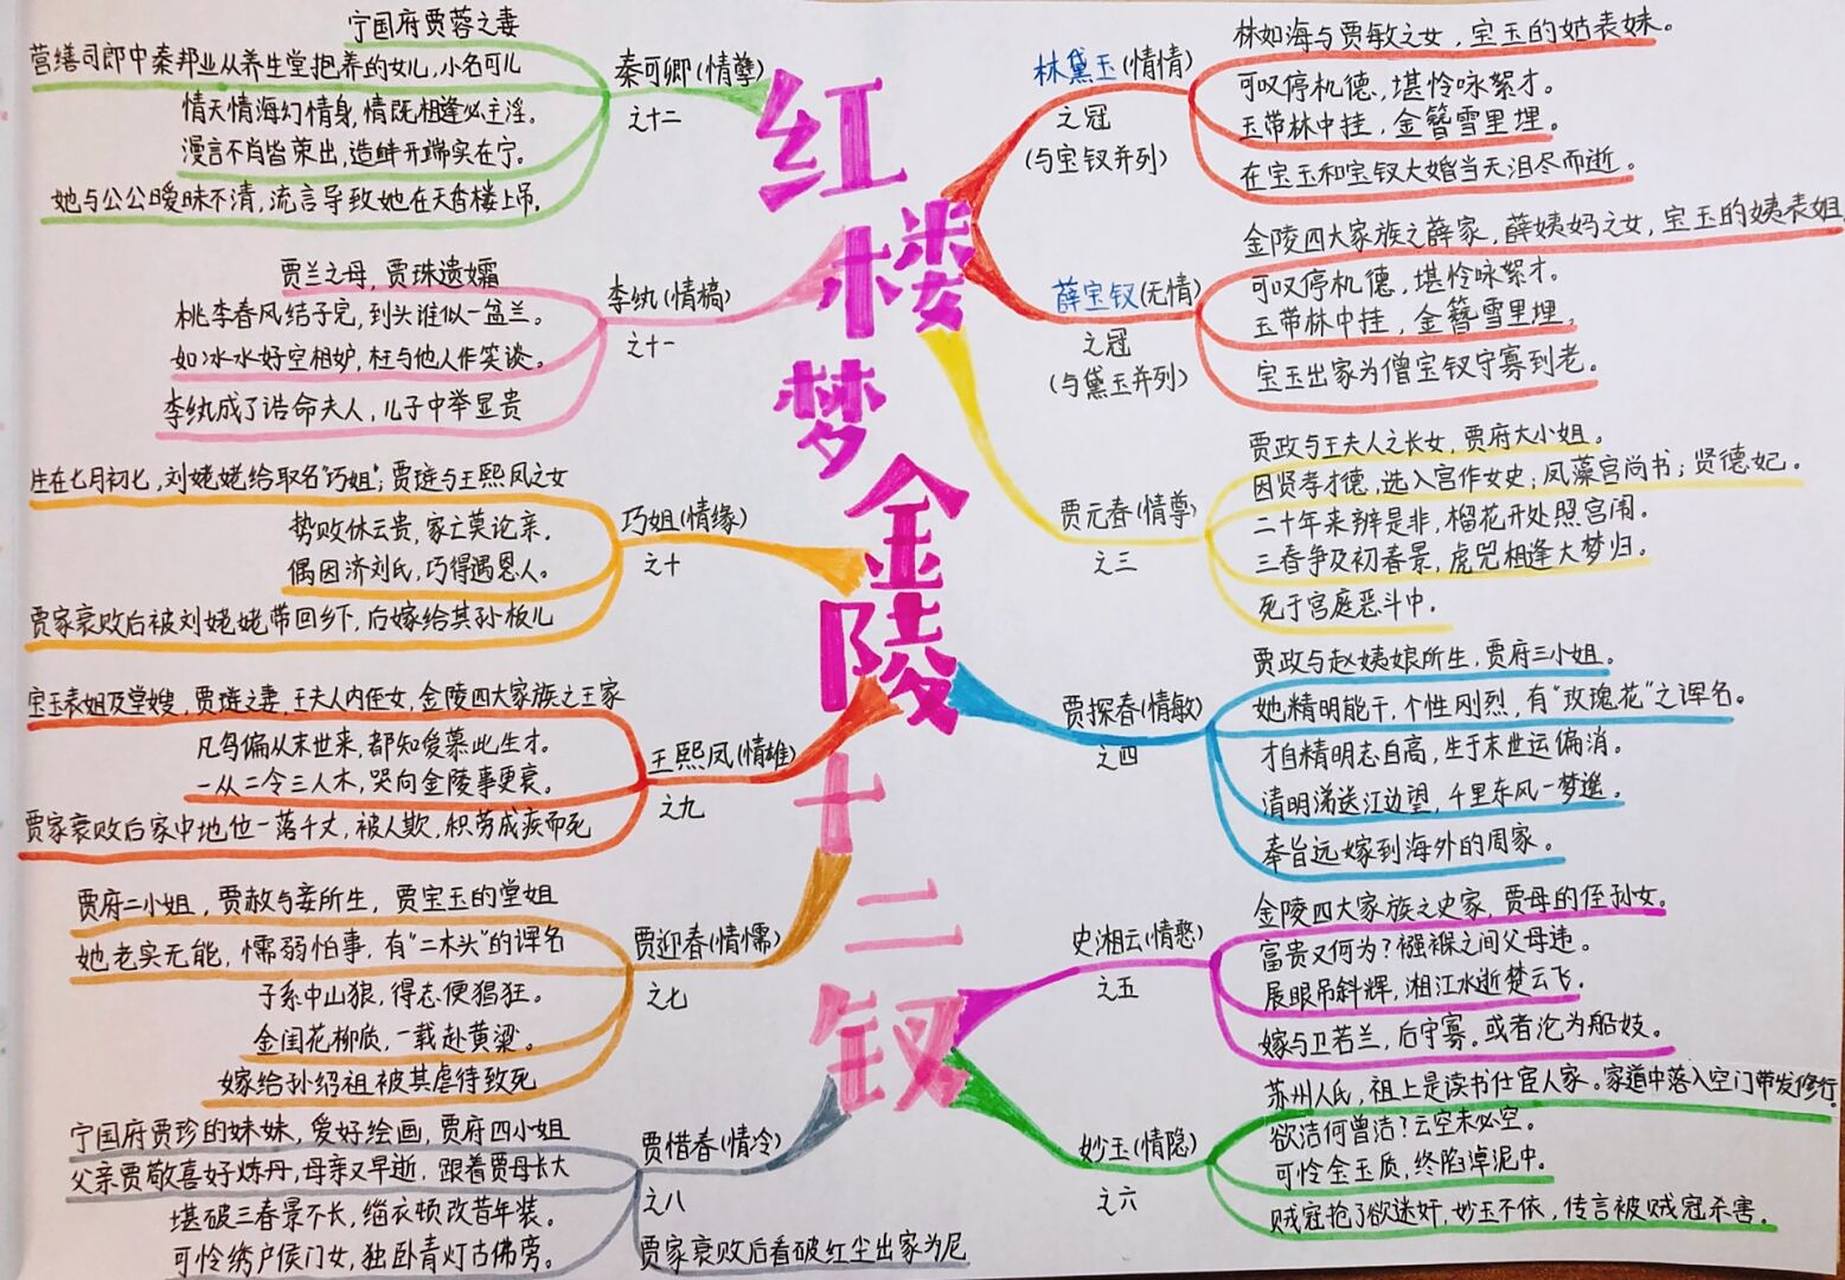 红楼梦金陵十二钗
林黛玉(情情)
之冠
(与宝钗并列)
林如海与贾敏之女，宝玉的姑表妹。
可叹停机德，堪怜咏絮才。
玉带林中挂，金簪雪里埋。
在宝玉和宝钗大婚当天泪尽而逝。
薛宝钗(无情)
之冠
(与黛玉并列)
金陵四大家族之薛家，薛姨妈之女，宝玉的姨表姐
可叹停机德，堪怜咏絮才。
玉带林中挂，金簪雪里埋。
宝玉出家为僧宝钗守寡到老。
贾元春(情尊)
之三
贾政与王夫人之长女，贾府大小姐。
因贤孝才德，选入宫作女史；凤藻宫尚书；贤德妃。
二十年来辨是非，榴花开处照宫闱。
三春争及初春景，虎兕相逢大梦归。
死于宫庭恶斗中.
贾探春(情敏)
之四
贾政与赵姨娘所生，贾府三小姐。
她精明能干，个性刚烈，有"玫瑰花"之诨名。
才自精明志自高，生于末世运偏消。
清明涕送江边望，千里东风一梦遥。
奉旨远嫁到海外的周家。
史湘云(情憨)
之五
金陵四大家族之史家，贾母的侄孙女。
富贵又何为？襁褓之间父母违。
展眼吊斜辉，湘江水逝楚云飞。
嫁与卫若兰，后守寡。或者沦为船妓。
妙玉(情隐)
之六
苏州人氏，祖上是读书仕宦人家。家道中落入空门带发修行.
欲洁何曾洁？云空未必空。
可怜金玉质，终陷淖泥中。
贼寇抢了欲迷奸，妙玉不依，传言被贼寇杀害。
秦可卿(情孽)
之十二
宁国府贾蓉之妻
营缮司郎中秦邦业从养生堂抱养的女儿，小名可儿
情天情海幻情身，情既相逢必主淫。
漫言不肖皆荣出，造衅开端实在宁。
她与公公暧昧不清，流言导致她在天香楼上吊.
李纨(情槁)
之十一
贾兰之母，贾珠遗孀
桃李春风结子完，到头谁似一盆兰。
如冰水好空相妒，枉与他人作笑谈。
李纨成了诰命夫人，儿子中举显贵
巧姐(情缘)
之十
生在七月初七，刘姥姥给取名"巧姐"；贾琏与王熙凤之女
势败休云贵，家亡莫论亲.
偶因济刘氏，巧得遇恩人。
贾家衰败后被刘姥姥带回乡下，后嫁给其孙板儿
王熙凤(情雄)
之九
宝玉表姐及堂嫂，贾琏之妻，王夫人内侄女，金陵四大家族之王家
凡鸟偏从末世来，都知爱慕此生才.
一从二令三人木，哭向金陵事更衰。
贾家衰败后家中地位一落千丈，被人欺，积劳成疾而死
贾迎春(情懦)
之七
贾府二小姐，贾赦与妾所生，贾宝玉的堂姐
她老实无能，懦弱怕事，有"二木头"的诨名
子系中山狼，得志便猖狂。
金闺花柳质，一载赴黄粱。
嫁给孙绍祖被其虐待致死
贾惜春(情冷)
之八
宁国府贾珍的妹妹，爱好绘画，贾府四小姐
父亲贾敬喜好炼丹，母亲又早逝，跟着贾母长大
堪破三春景不长，缁衣顿改昔年装。
可怜绣户侯门女，独卧青灯古佛旁。
贾家衰败后看破红尘出家为尼